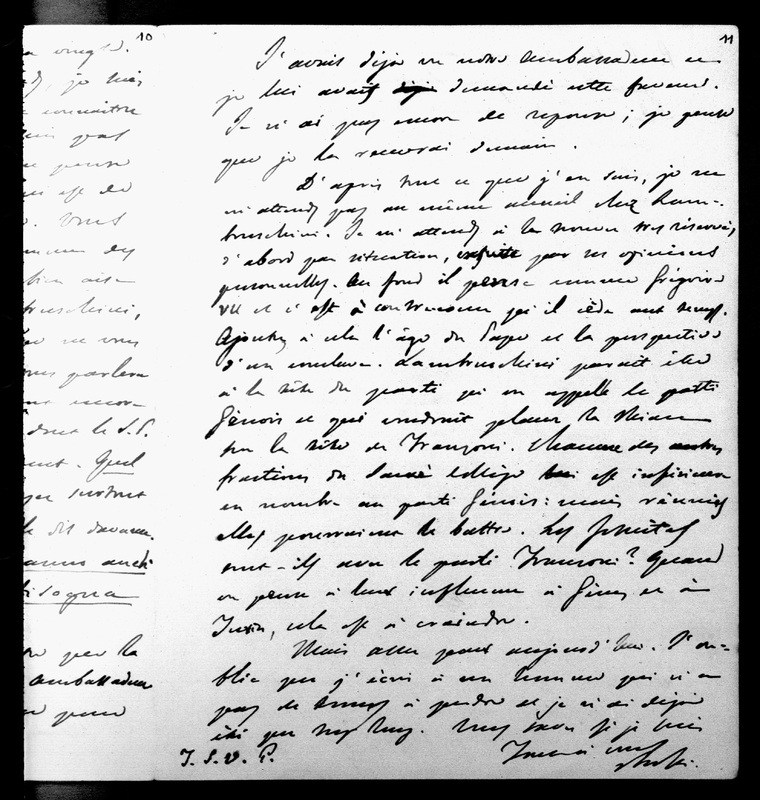 10
a vingt.
je suis
connaitre
pas
pense
est de
Vous
des
bien aise
bruschini,
ne vous
vous parlera
encore
dont le S. P.
Quel
surtout
le dit
anche
bisogna
par la
ambassadeur
pour
11
J'avais déjà vu notre ambassadeur et
je lui avais déjà demandé cette faveur.
Je n'ai pas encore de reponse ; je pense
que je la recevrai demain.
D'après tout ce que j'en sais, je ne
m'attends pas au même accueil chez Lam-
bruschini. Je m'attends à le trouver très réservé,
d'abord par situation, ensuite par ses opinions
personnelles. Au fond il pense comme Grégoire
XVI et c'est à contrecœur qu'il cède aux temps.
Ajoutez à cela l'âge du Pape et la perspective
d'un conclave. Lambruschini parait être
à la tête du parti qu'on appelle le parti
Génois et qui voudrait placer la thiare
sur la tête de Franzoni. Chacune des autres
fractions du Sacré Collège est inférieure
en nombre au parti Génois : mais réunies
elles pourraient le battre. Les Jésuites
sont-ils avec le parti Franzoni ? Quand
on pense à leur influence à Gênes et à
Turin, cela est à craindre.
Mais assez pour aujourd'hui. J'ou-
blie que j'écris à un homme qui n'a
pas de temps à perdre et je n'ai déjà
été que trop long. Vous savez si je suis
T. S. V. P.